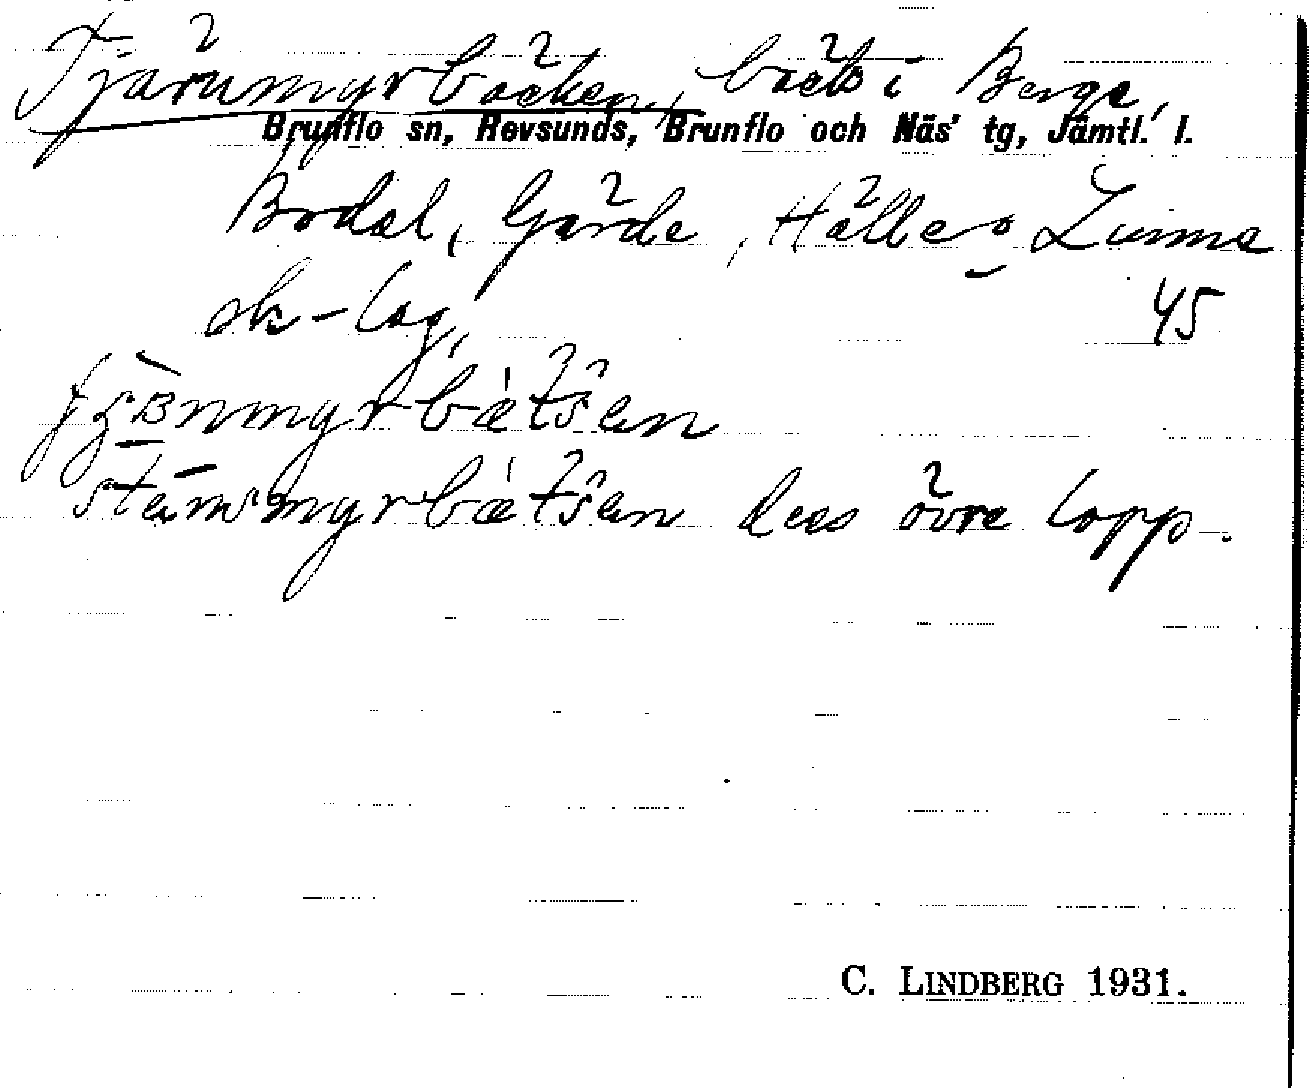 Tjärumyrbäcken, bäck i Berge,
Brunflo sn, Revsunds, Brunflo och Näs' tg, Jämtl. l.
Bodal, Gärde, Hälle o Lunne
sk-lag,
45
myrbätsen
myrbätsen dess övre lopp.
C. LINDBERG 1931.